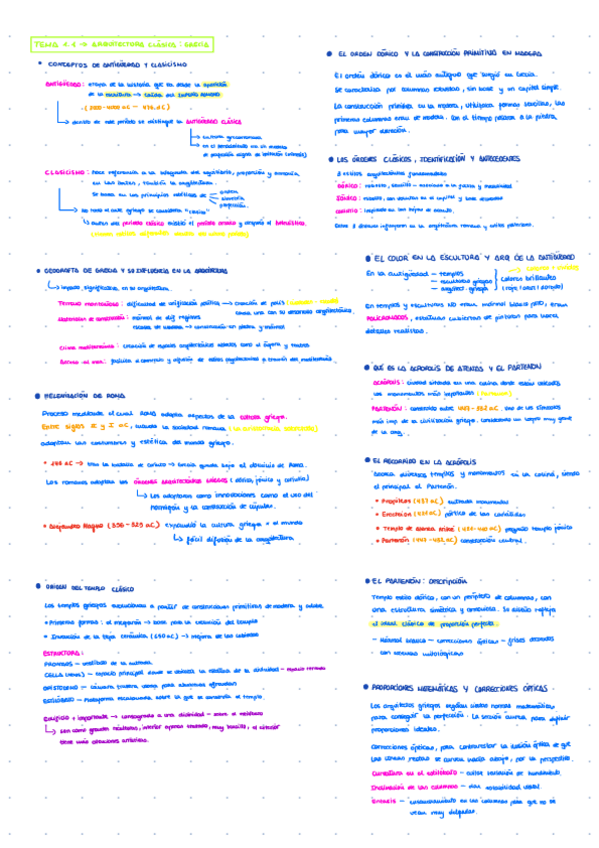 TEMA 4 -> ARQUITECTURA CLÁSICA: GRECIA
CONCEPTOS DE ANTIGÜEDAD Y CLASICISMO
ANTIGÜEDAD: etapa de la historia que va desde la aparición
de la escritura -> caída del Imperio Romano
dentro de este periodo se distingue la ANTIGÜEDAD CLÁSICA
CLASICISMO: hace referencia a la búsqueda del equilibrio, proporción y armonía
en las artes, también la arquitectura.
Se basa en los principios estéticos de
orden
simetría
proporción
no todo el arte griego se considera "clásico"
GEOGRAFÍA DE GRECIA Y SU INFLUENCIA EN LA ARQUITECTURA
impacto significativo en su arquitectura.
Terreno montañoso: dificultad de unificación política -> creación de polis
cada una con su desarrollo arquitectónico
Clima mediterráneo: creación de espacios
HELENIZACIÓN DE ROMA
Proceso mediante el cual Roma adopta aspectos de la cultura griega.
Entre siglos II y I aC, cuando la sociedad romana
adoptan las costumbres y estética del mundo griego.
* 146 aC -> tras la batalla de Corinto -> Grecia queda bajo el dominio de Roma.
Los romanos adoptan los órdenes arquitectónicos griegos (dórico, jónico y corintio)
Los adaptaron como innovaciones como el uso del
hormigón y la construcción de cúpulas.
* Alejandro Magno (356-323 aC) expandió la cultura griega x el mundo
fácil difusión de la arquitectura.
ORIGEN DEL TEMPLO CLÁSICO
Los templos griegos evolucionan a partir de construcciones primitivas de madera y adobe
* Primeras formas: el megarón -> base para la creación del templo
* Invención de la teja cerámica (650 aC) -> mejora de las cubiertas
ESTRUCTURA:
PRONAOS - vestíbulo de la entrada
CELLA (naos) - espacio principal donde se ubicaba la estatua de la divinidad -
OPISTODOMO - cámara trasera usada para
ESTILÓBATO - Plataforma escalonada sobre la que se asienta el templo.
EDIFICIO + importante -> consagrado a una divinidad -
EL ORDEN DÓRICO Y LA CONSTRUCCIÓN PRIMITIVA EN MADERA
El orden dórico es el más antiguo que surgió en Grecia.
Se caracteriza por columnas estriadas, sin base y un capitel simple.
La construcción primitiva es en madera, utilizaba formas sencillas, las
primeras columnas eran de madera. Con el tiempo pasaron a la piedra,
para mayor duración.
LOS ÓRDENES CLÁSICOS, IDENTIFICACIÓN Y ANTECEDENTES
3 estilos arquitectónicos fundamentales
DÓRICO: robusto, sencillo -
JÓNICO: esbelto, con volutas en el capitel y base
CORINTIO: inspirado en las hojas de acanto.
Estos 3 órdenes influyeron en la arquitectura romana y estilos posteriores.
EL COLOR EN LA ESCULTURA Y ARQ. DE LA ANTIGÜEDAD
En la antigüedad - templos
- escultura griega
- arquitect. griega
colores brillantes
En templos y esculturas NO eran mármol blanco puro, eran
POLICROMADOS, estaban cubiertos de pinturas para hacer
detalles realistas.
QUÉ ES LA ACRÓPOLIS DE ATENAS Y EL PARTENÓN
ACRÓPOLIS: ciudad situada en una colina donde están ubicados
los monumentos más importantes
PARTENÓN: construido entre 447-432 aC. Uno de los símbolos
más imp. de la civilización griega. Considerado un templo muy grande
de la arq.
EL RECORRIDO EN LA ACRÓPOLIS
templos y monumentos en la colina, siendo
el principal el Partenón.
* Propíleos (437 aC) entrada monumental
* Erecteion (421 aC) pórtico de las cariátides
* Templo de Atenea Niké pequeño templo jónico
* Partenón (447-432 aC) construcción central.
EL PARTENÓN: DESCRIPCIÓN
Templo estilo dórico, con un peristilo de columnas, con
una estructura simétrica y armoniosa. Su diseño refleja
el ideal clásico de proporción perfecta.
- Mármol blanco - correcciones ópticas - frisos decorados
con escenas mitológicas
PROPORCIONES MATEMÁTICAS Y CORRECCIONES ÓPTICAS
Los arquitectos griegos seguían ciertas normas matemáticas,
para conseguir la perfección. La sección áurea, para definir
proporciones ideales.
Correcciones ópticas, para contrarrestar la ilusión óptica de que
las líneas rectas se curvan hacia abajo, por la perspectiva.
Curvatura en el estilóbato - evitar sensación de hundimiento.
Inclinación de las columnas - dan estabilidad visual.
Éntasis - ensanchamiento en las columnas para que no se
vean muy delgadas.